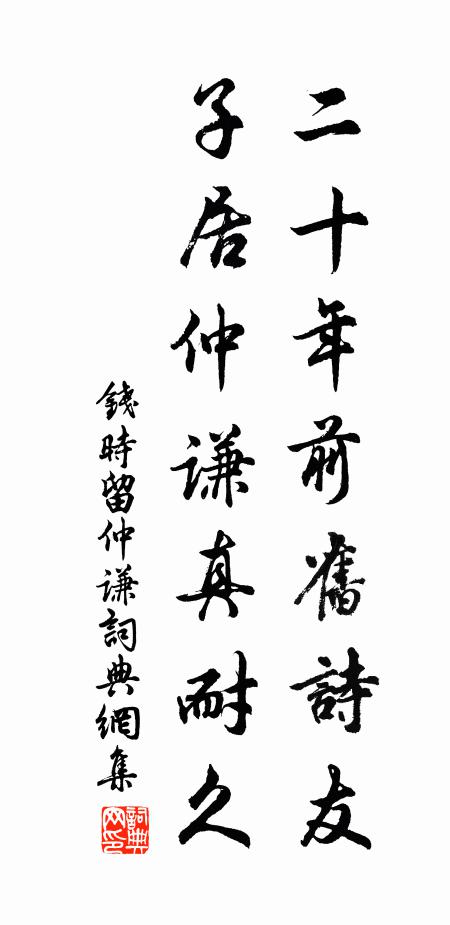 二十年前舊詩友
子居仲謙真耐久
錢時留仲謙詞典網集
詞典网印